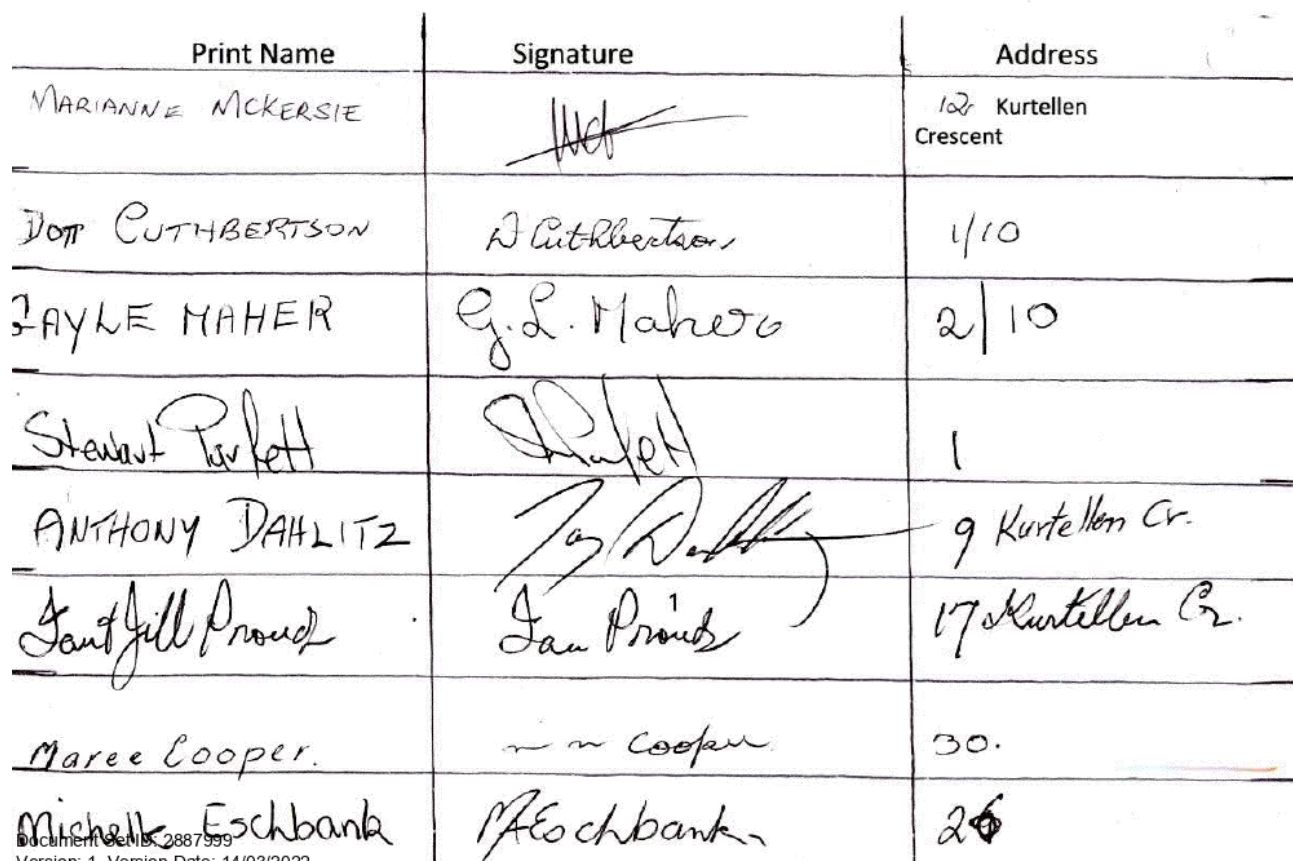 Print Name Signature Address
MARIANNE MCKERSIE 12 Kurtellen
Crescent
DOTT CUTHBERTSON D Cuthbertson 1/10
GAYLE MAHER G. L. Maher 2/10
Stewart Parfett 1
ANTHONY DAHLITZ 9 Kurtellen Cr.
Ian & Jill Proud Ian Proud 17 Kurtellen Cr.
Maree Cooper. m m Cooper 30.
Michelle Eschbank M Eschbank 26
Document Set ID: 2887999
Version: 1, Version Date: 14/03/2022